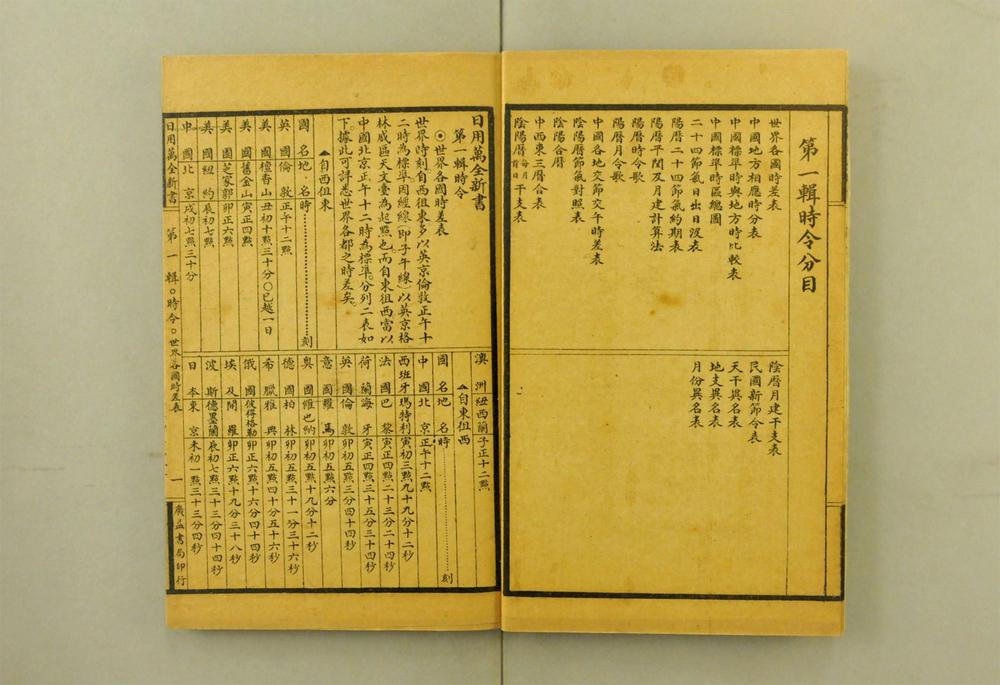 第一輯時令分目
世界各國時差表
中國地方相應時分表
中國標準時與地方時比較表
中國標準時區總圖
二十四節氣日出日沒表
陽曆二十四節氣約期表
陽曆平閏及月建計算法
陽曆時令歌
陽曆月令歌
中國各地交節交午時差表
陰陽曆節氣對照表
陰陽合曆
中西東三曆合表
陰陽曆每月首日干支表
陰曆月建干支表
民國新節令表
天干異名表
地支異名表
月份異名表
日用萬全新書
第一輯時令
⊙世界各國時差表
世界時刻自西徂東多以英京倫敦正午十
二時為標準因經線(即子午線)以英京格
林威區天文臺為起點也而自東徂西當以
中國北京正午十二時為標準分列二表如
下據此可詳悉世界各都之時差矣
▲自西徂東
國名地名時……刻
英國倫敦正午十二點
美國檀香山丑初十點三十分〇已越一日
美國舊金山寅正四點
美國芝家郭卯正六點
美國紐約辰初七點
中國北京戌初七點三十分
澳洲紐西蘭子正十二點
▲自東徂西
國名地名時……刻
中國北京正午十二點
西班牙瑪特利寅初三點九十九分十二秒
法國巴黎寅正四點二十三分二十四秒
荷蘭海牙寅正四點三十五分三十四秒
英國倫敦卯初五點三分四十四秒
意國羅馬卯初五點六分
奧國維也納卯初五點十九分十二秒
德國柏林卯初五點三十一分三十六秒
希臘雅典卯初五點四十分五十六秒
俄國彼得格勒卯正六點十六分四十四秒
埃及開羅卯正六點十九分三十八秒
波斯德墨蘭辰初七點三十三分四十四秒
日本東京未初一點三十三分四秒
日用萬全新書
第一輯〇時令〇世界各國時差表
一
廣益書局印行